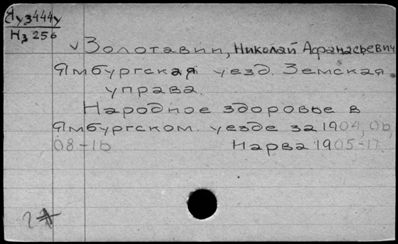 Дуз444у
Нз 256
Золотавин, Николай Афанасьевич
Ямбургская уезд. Земская
управа.
Народное здоровье в
Ямбургском уезде за 1904, 06
08-16 Нарва 1905-17